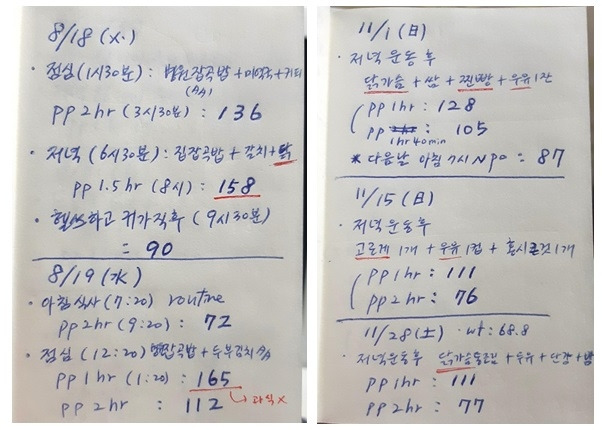 8/18 (火)
· 점심 (1시30분) : 병원잡곡밥 + 미역국 +
pp 2hr (3시30분) : 136
· 저녁 (6시30분) : 집잡곡밥 + 김치 + 닭
pp 1.5hr (8시) : 158
· 헬스하고 귀가직후 (9시30분)
= 90
8/19 (水)
· 아침식사 (7:20) routine
pp 2hr (9:20) : 72
· 점심 (12:20) 병원잡곡밥 + 두부김치
pp 1hr (1:20) : 165
→ 과식 x
pp 2hr : 112
11/1 (日)
· 저녁 운동 후
닭가슴 + 쌈 + 찐빵 + 우유 1잔
pp 1hr : 128
pp : 105
1hr 40min
* 다음날 아침 7시 NPO = 87
11/15 (日)
· 저녁 운동후
고르게 1개 + 우유 1컵 + 홍시큰것 1개
pp 1hr : 111
pp 2hr : 76
11/28 (土) · wt : 68.8
· 저녁운동후 + 두유 + 단감 + 밤
pp 1hr : 111
pp 2hr : 77